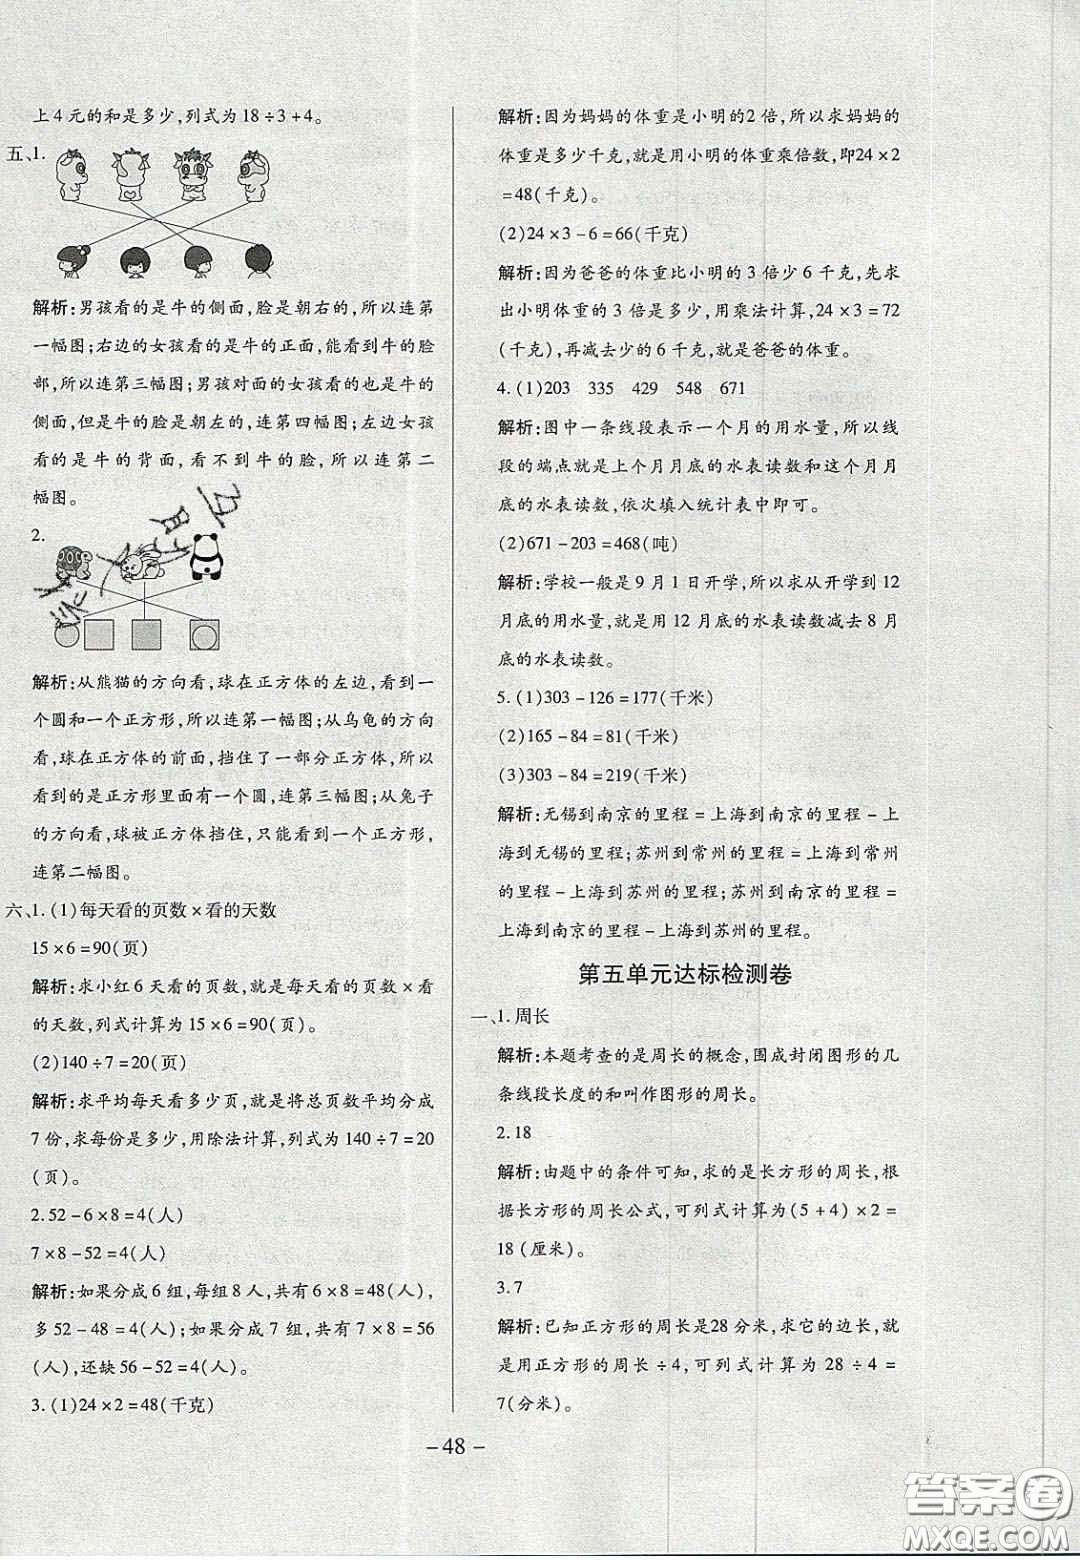 上4元的和是多少,列式为18÷3+4。
五、1.
解析:男孩看的是牛的侧面,脸是朝右的,所以连第
一幅图;右边的女孩看的是牛的正面,能看到牛的脸
部,所以连第三幅图;男孩对面的女孩看的也是牛的
侧面,但是牛的脸是朝左的,连第四幅图;左边女孩
看的是牛的背面,看不到牛的脸,所以连第二
幅图。
2.
解析:从熊猫的方向看,球在正方体的左边,看到一
个圆和一个正方形,所以连第一幅图;从乌龟的方向
看,球在正方体的前面,挡住了一部分正方体,所以
看到的是正方形里面有一个圆,连第三幅图;从兔子
的方向看,球被正方体挡住,只能看到一个正方形,
连第二幅图。
六、1.(1)每天看的页数×看的天数
15×6=90(页)
解析:求小红6天看的页数,就是每天看的页数×看
的天数,列式计算为15×6=90(页)。
(2)140÷7=20(页)
解析:求平均每天看多少页,就是将总页数平均分成
7份,求每份是多少,用除法计算,列式为140÷7=20
(页)。
2.52-6×8=4(人)
7×8-52=4(人)
解析:如果分成6组,每组8人,共有6×8=48(人),
多52-48=4(人);如果分成7组,共有7×8=56
(人),还缺56-52=4(人)。
3.(1)24×2=48(千克)
解析:因为妈妈的体重是小明的2倍,所以求妈妈的
体重是多少千克,就是用小明的体重乘倍数,即24×2
=48(千克)。
(2)24×3-6=66(千克)
解析:因为爸爸的体重比小明的3倍少6千克,先求
出小明体重的3倍是多少,用乘法计算,24×3=72
(千克),再减去少的6千克,就是爸爸的体重。
4.(1)203 335 429 548 671
解析:图中一条线段表示一个月的用水量,所以线
段的端点就是上个月月底的水表读数和这个月月
底的水表读数,依次填入统计表中即可。
(2)671-203=468(吨)
解析:学校一般是9月1日开学,所以求从开学到12
月底的用水量,就用12月底的水表读数减去8月
底的水表读数。
5.(1)303-126=177(千米)
(2)165-84=81(千米)
(3)303-84=219(千米)
解析:无锡到南京的里程=上海到南京的里程-上
海到无锡的里程;苏州到常州的里程=上海到常州
的里程-上海到苏州的里程;苏州到南京的里程=
上海到南京的里程-上海到苏州的里程。
第五单元达标检测卷
一、1.周长
解析:本题考查的是周长的概念,围成封闭图形的几
条线段长度的和叫作图形的周长。
2.18
解析:由题中的条件可知,求的是长方形的周长,根
据长方形的周长公式,可列式计算为(5+4)×2=
18(厘米)。
3.7
解析:已知正方形的周长是28分米,求它的边长,就
是用正方形的周长÷4,可列式计算为28÷4=
7(分米)。
-48-
答案圈
MXQE.COM